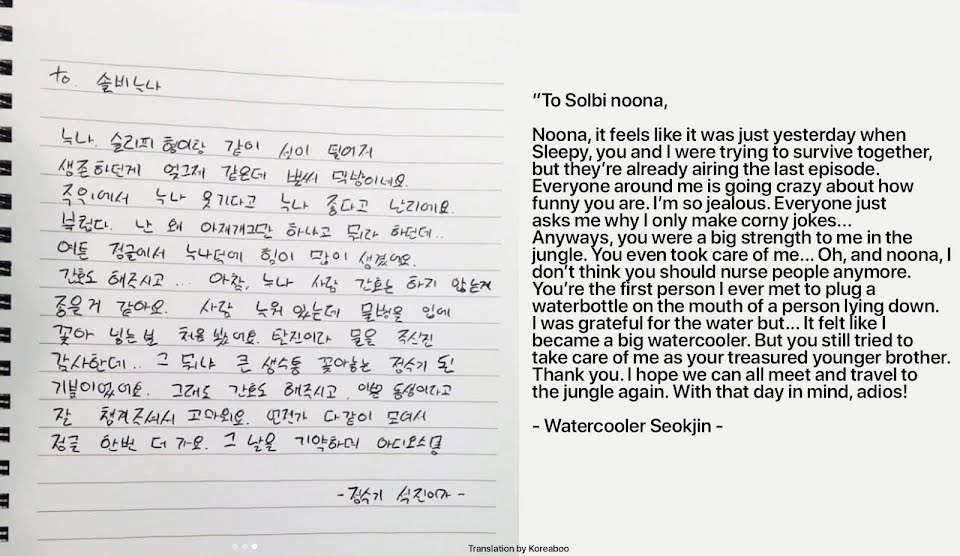 to. 솔비누나
누나, 슬리피 형이랑 같이 셋이 떨어져
생존하던게 엊그제 같은데 벌써 막방이네요.
주위에서 누나 웃기다고 누나 좋다고 난리에요.
부럽다. 난 왜 아재개그만 하냐고 뭐라 하던데..
여튼 정글에서 누나덕에 힘이 많이 생겼어요.
간호도 해주시고... 아참, 누나 사람 간호는 하지 않는게
좋을거 같아요. 사람 누워있는데 물병을 입에
꽂아 넣는 분 처음 봤어요. 탈진이라 물을 주신건
감사한데.. 그 뭐냐 큰 생수통 꽂아놓는 정수기 된
기분이었어요. 그래도 간호도 해주시고, 이쁜 동생이라고
잘 챙겨주셔서 고마워요. 언젠가 다같이 모여서
정글 한번 더 가요. 그 날을 기약하며 아디오스
-정수기 석진이가-
“To Solbi noona,
Noona, it feels like it was just yesterday when
Sleepy, you and I were trying to survive together,
but they’re already airing the last episode.
Everyone around me is going crazy about how
funny you are. I’m so jealous. Everyone just
asks me why I only make corny jokes...
Anyways, you were a big strength to me in the
jungle. You even took care of me... Oh, and noona, I
don’t think you should nurse people anymore.
You’re the first person I ever met to plug a
waterbottle on the mouth of a person lying down.
I was grateful for the water but... It felt like I
became a big watercooler. But you still tried to
take care of me as your treasured younger brother.
Thank you. I hope we can all meet and travel to
the jungle again. With that day in mind, adios!
- Watercooler Seokjin -
Translation by Koreaboo